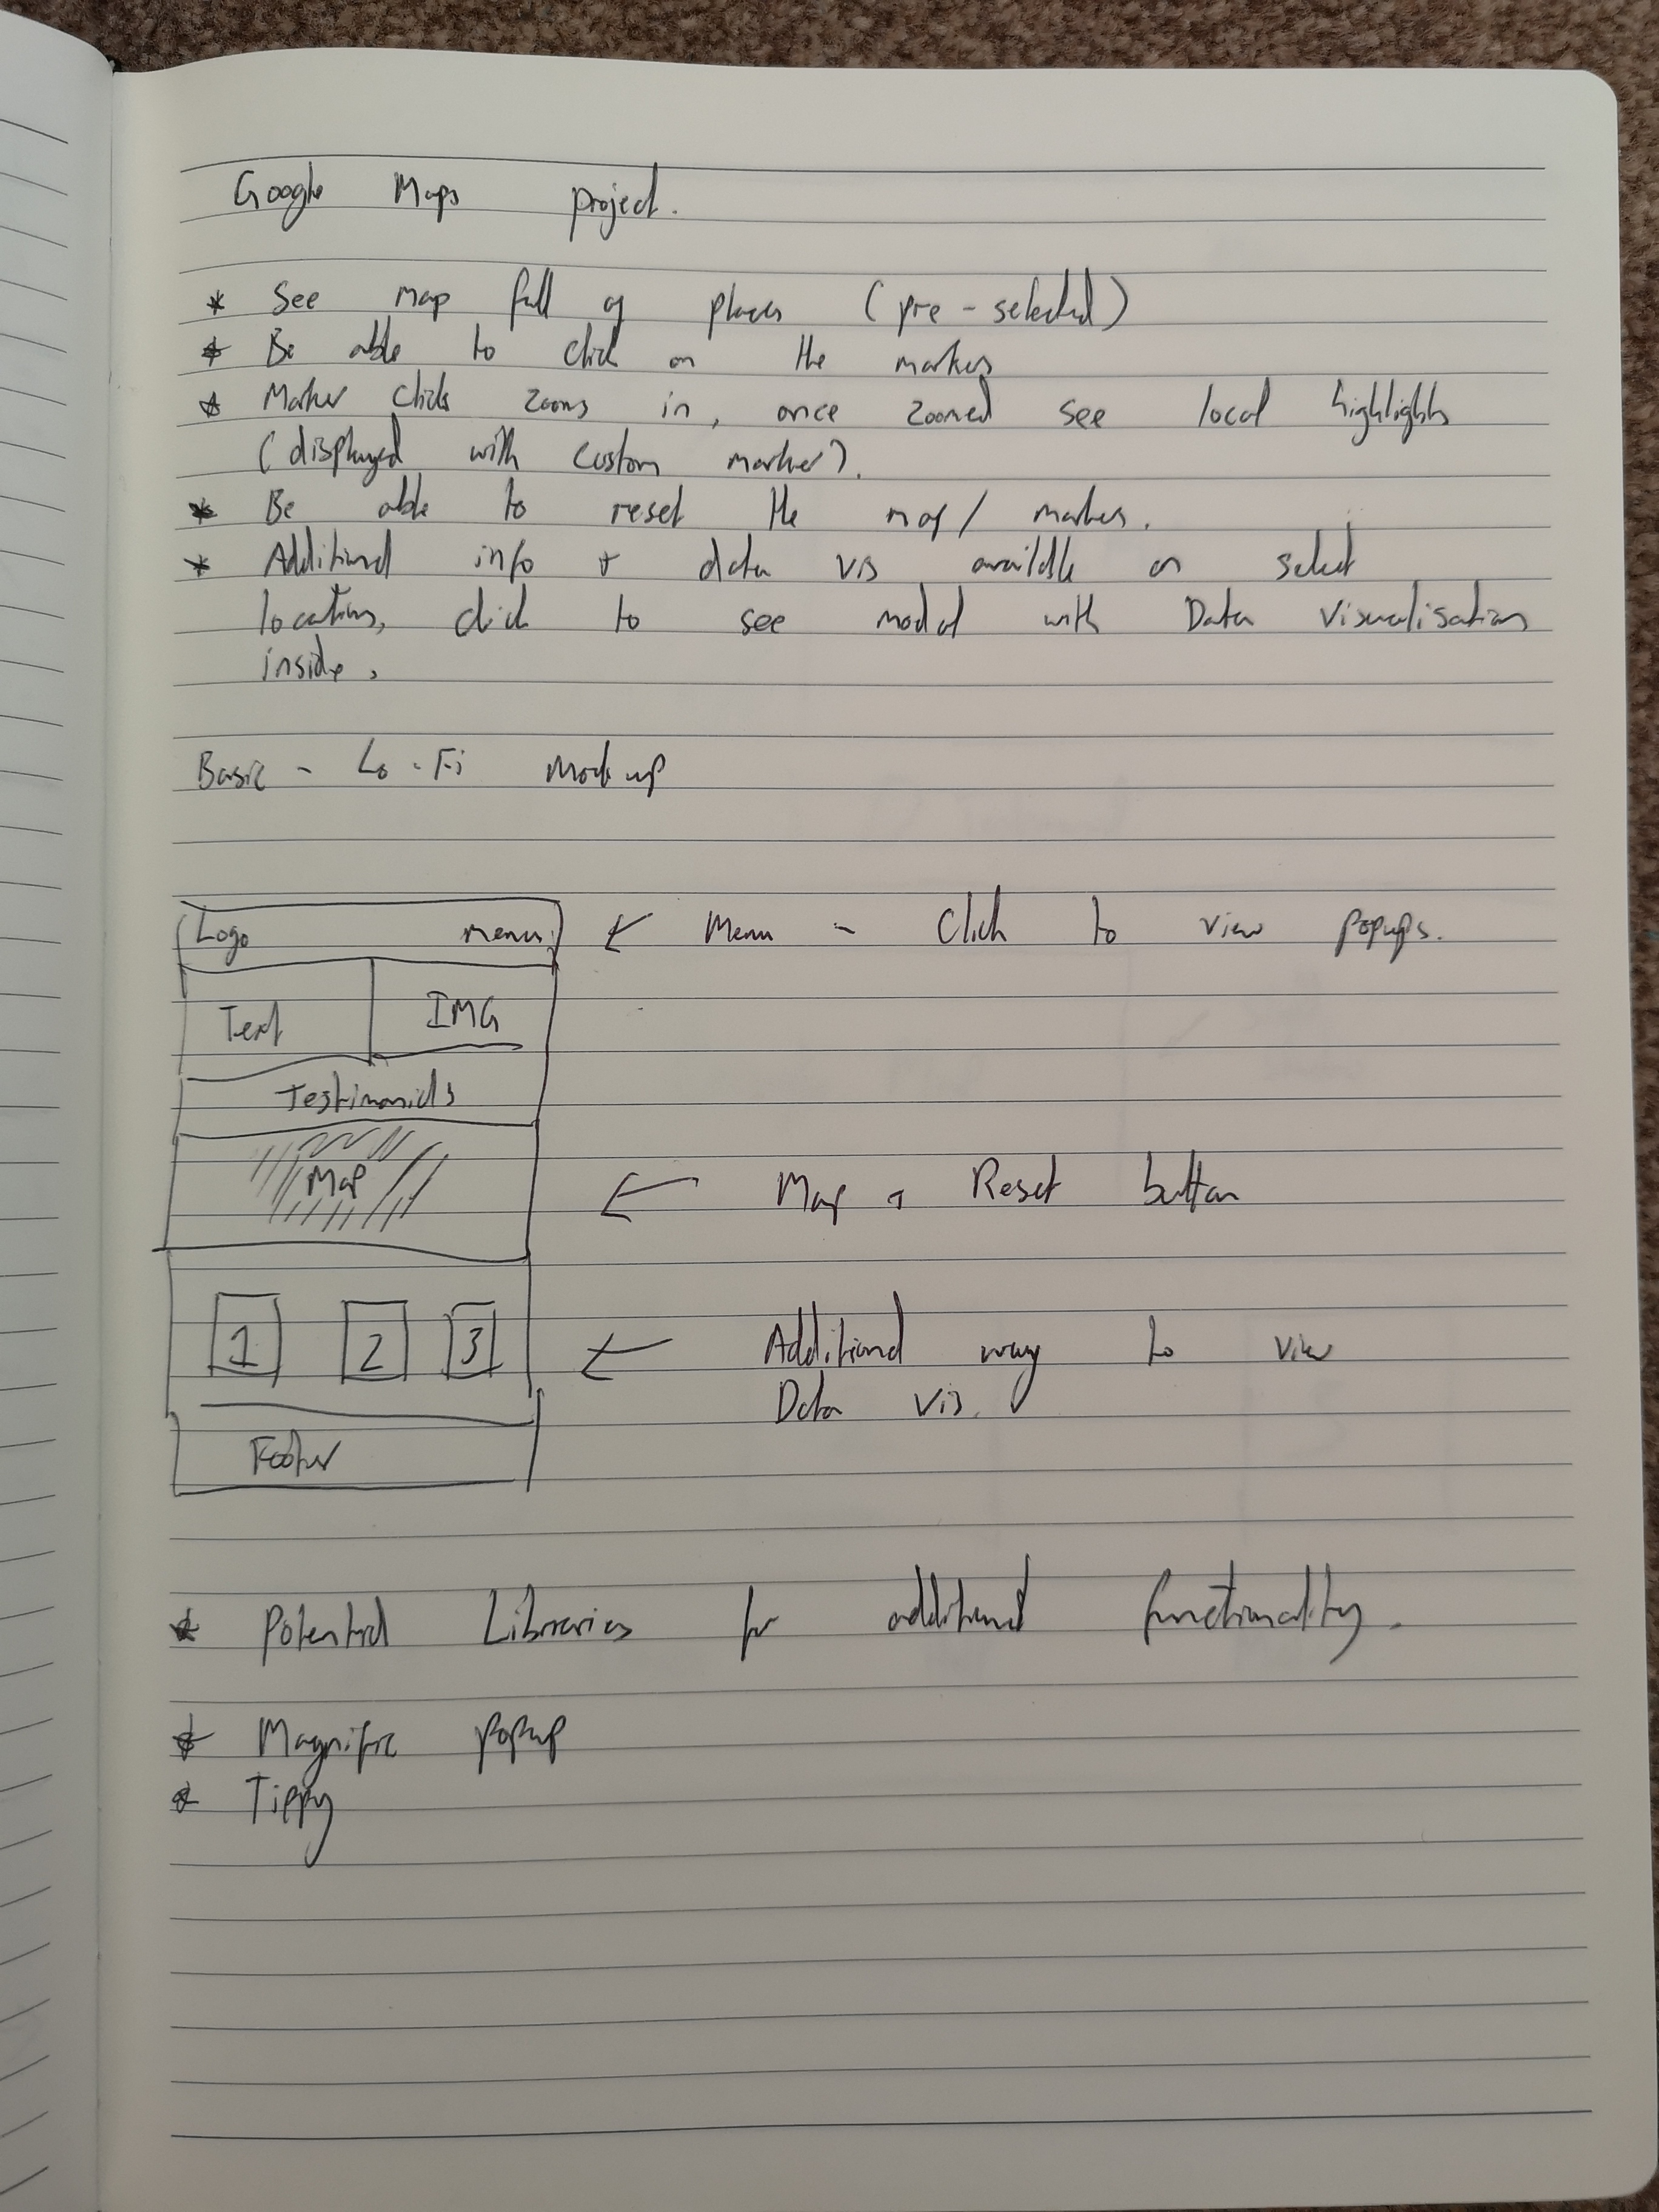 Google Maps project.
* See map full of places (pre-selected)
* Be able to click on the markers
* Marker clicks zooms in, once zoomed see local highlights
(displayed with custom marker).
* Be able to reset the map/ markers.
* Additional info + data vis available on select
locations, click to see modal with Data Visualisation
inside.
Basic - Lo-Fi Mock up
Logo menu ← Menu - Click to view popups.
Text IMG
Testimonials
Map ← Map + Reset button
1 2 3 ← Additional way to view
Data Vis.
Footer
* Potential Libraries for additional functionality.
* Magnific popup
* Tippy